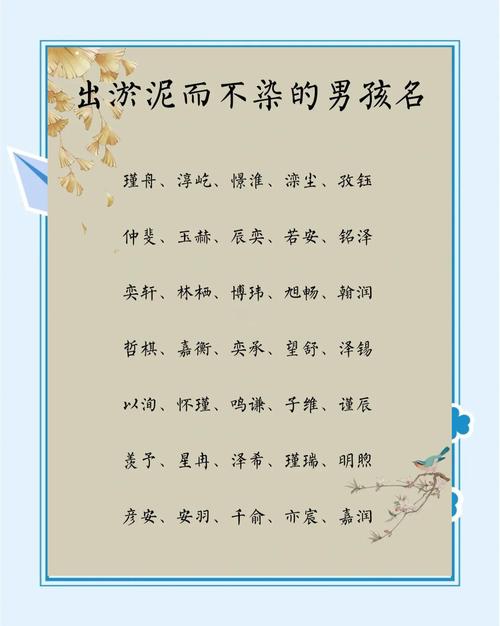 出淤泥而不染的男孩名
瑾舟、淳屹、憬淮、滦尘、孜钰
仲斐、玉赫、辰奕、若安、铭泽
奕轩、林栖、博玮、旭畅、翰润
哲棋、嘉衡、奕承、望舒、泽锡
以洵、怀瑾、鸣谦、子维、谨辰
羡予、星冉、泽希、瑾瑞、明煦
彦安、安羽、千俞、亦宸、嘉润